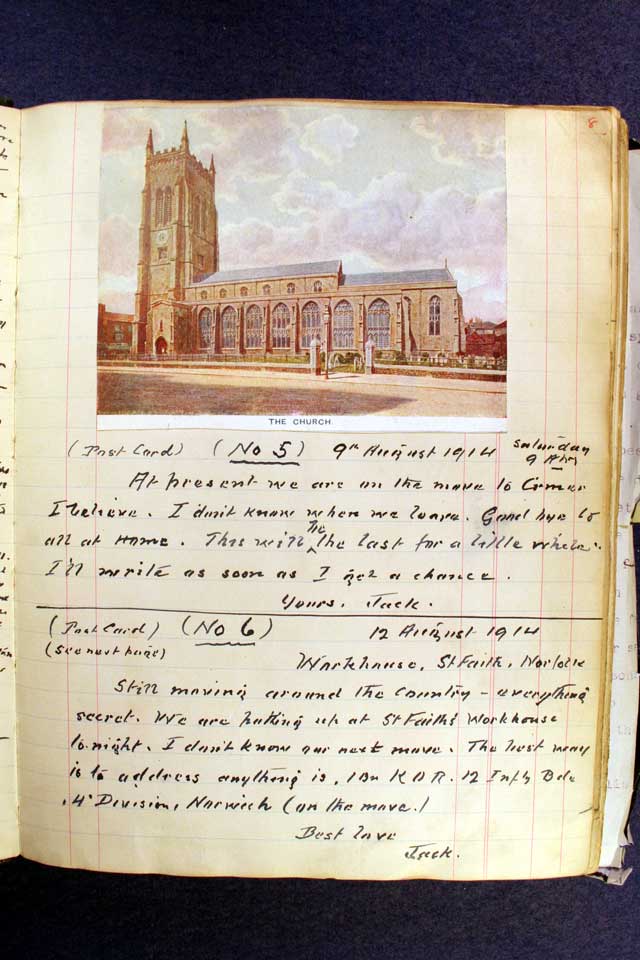 8
THE CHURCH.
(Post Card) (No 5) 9th August 1914 Saturday
9 Aug
At present we are on the move to Cromer
I believe. I don't know when we leave. Good bye to
all at Home. This will the the last for a little while.
I'll write as soon as I get a chance.
Yours, Jack.
(Post Card) (No 6) 12 August 1914
(see next page)
Workhouse, St Faith, Norfolk
Still moving around the country – everything
secret. We are putting up at St Faith's Workhouse
to-night. I don't know our next move. The best way
is to address anything is, 1 Bn K.O.R. 12 Infy Bde
4th Division, Norwich (on the move.)
Best love
Jack.